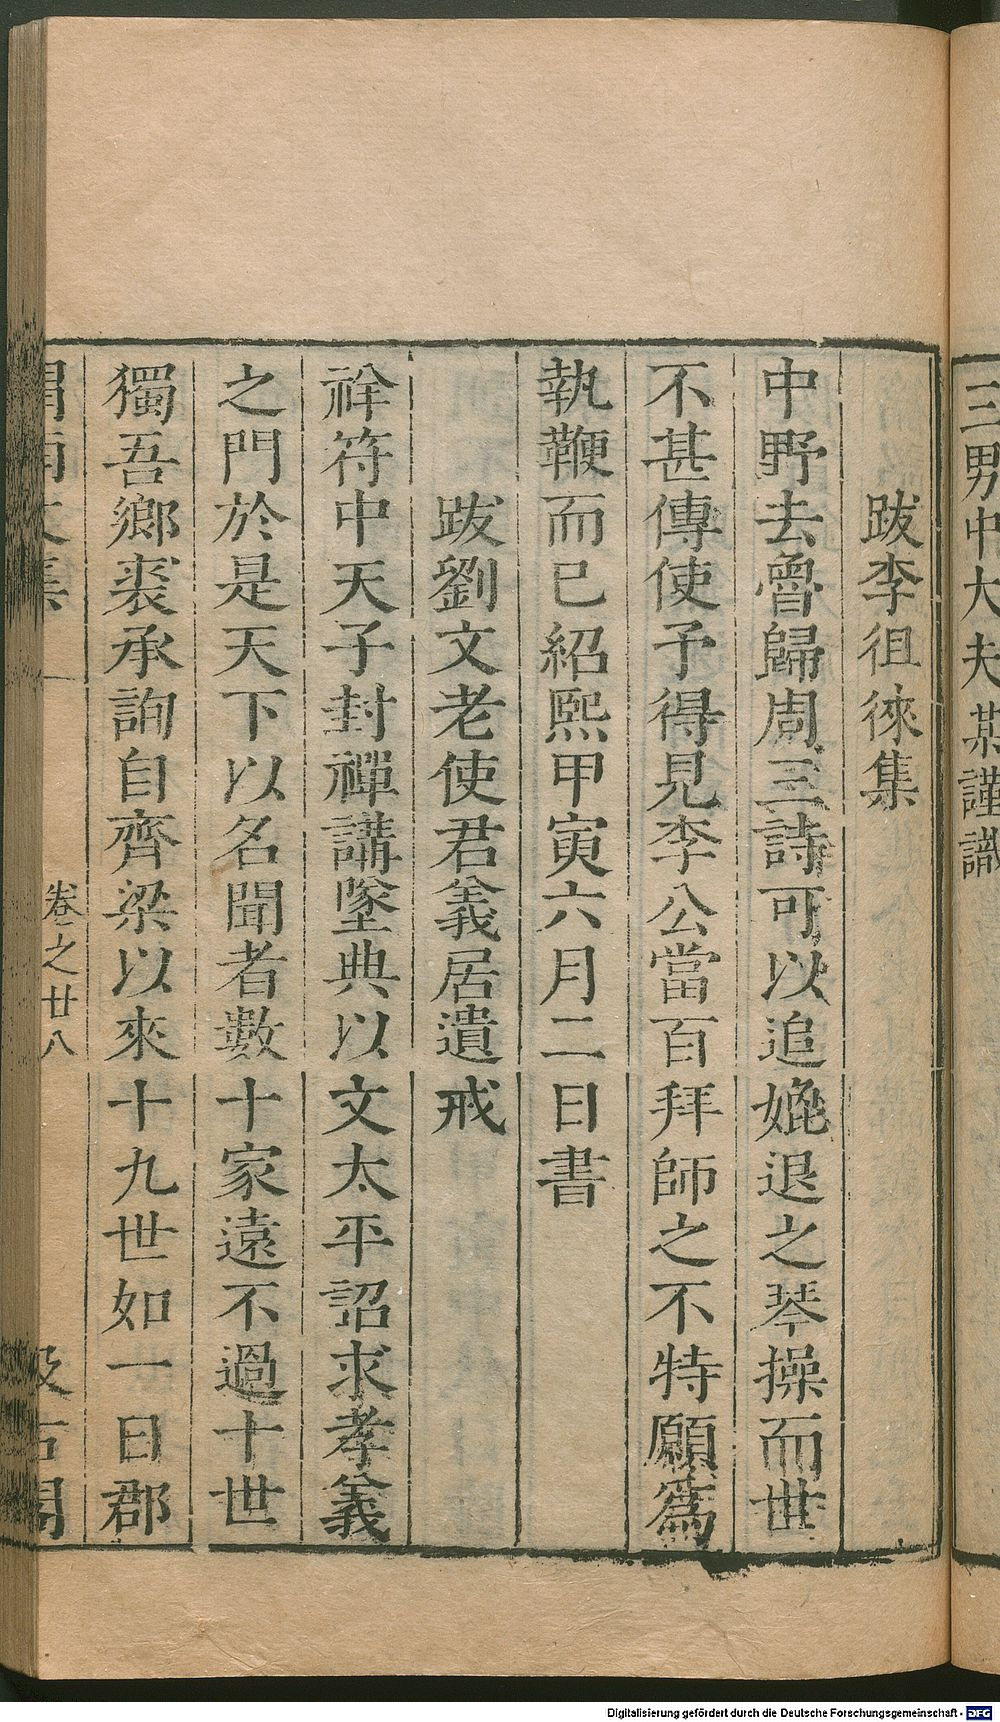 三男中大夫某謹識
跋李徂徠集
中野去魯歸周三詩可以追媲退之琴操而世
不甚傳使予得見李公當百拜師之不特願爲
執鞭而已紹熙甲寅六月二日書
跋劉文老使君義居遺戒
祥符中天子封禪講墜典以文太平詔求孝義
之門於是天下以名聞者數十家遠不過十世
獨吾鄉裘承詢自齊梁以來十九世如一日郡
渭南文集 卷之廿八 汲古閣
Digitalisierung gefördert durch die Deutsche Forschungsgemeinschaft - DFG